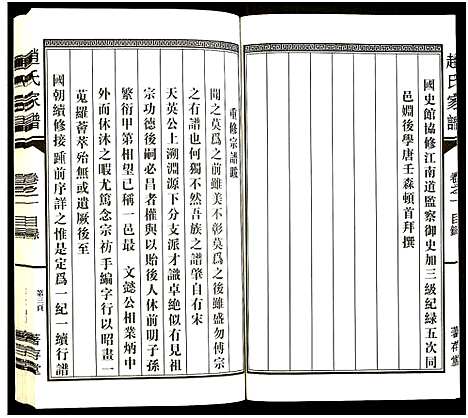 趙氏家譜
卷之一 目錄
國史館協修江南道監察御史加三級紀錄五次同
邑姻後學唐壬森頓首拜撰
重修宗譜跋
聞之莫爲之前雖美不彰莫爲之後雖盛勿傳宗
之有譜也何獨不然吾族之譜肇自有宋
天英公上溯淵源下分支派才識卓絶似有見祖
宗功德後嗣必昌者權輿以貽後人休前明子孫
繁衍甲第相望已稱一邑最 文懿公相業炳中
外而休沐之暇尤篤念宗祊手編字行以勗以續
蒐羅薈萃殆無或遺厥後至
國朝續修接踵前序詳之惟是定爲一紀一續行譜
趙氏家譜
卷之一 目錄
第三頁